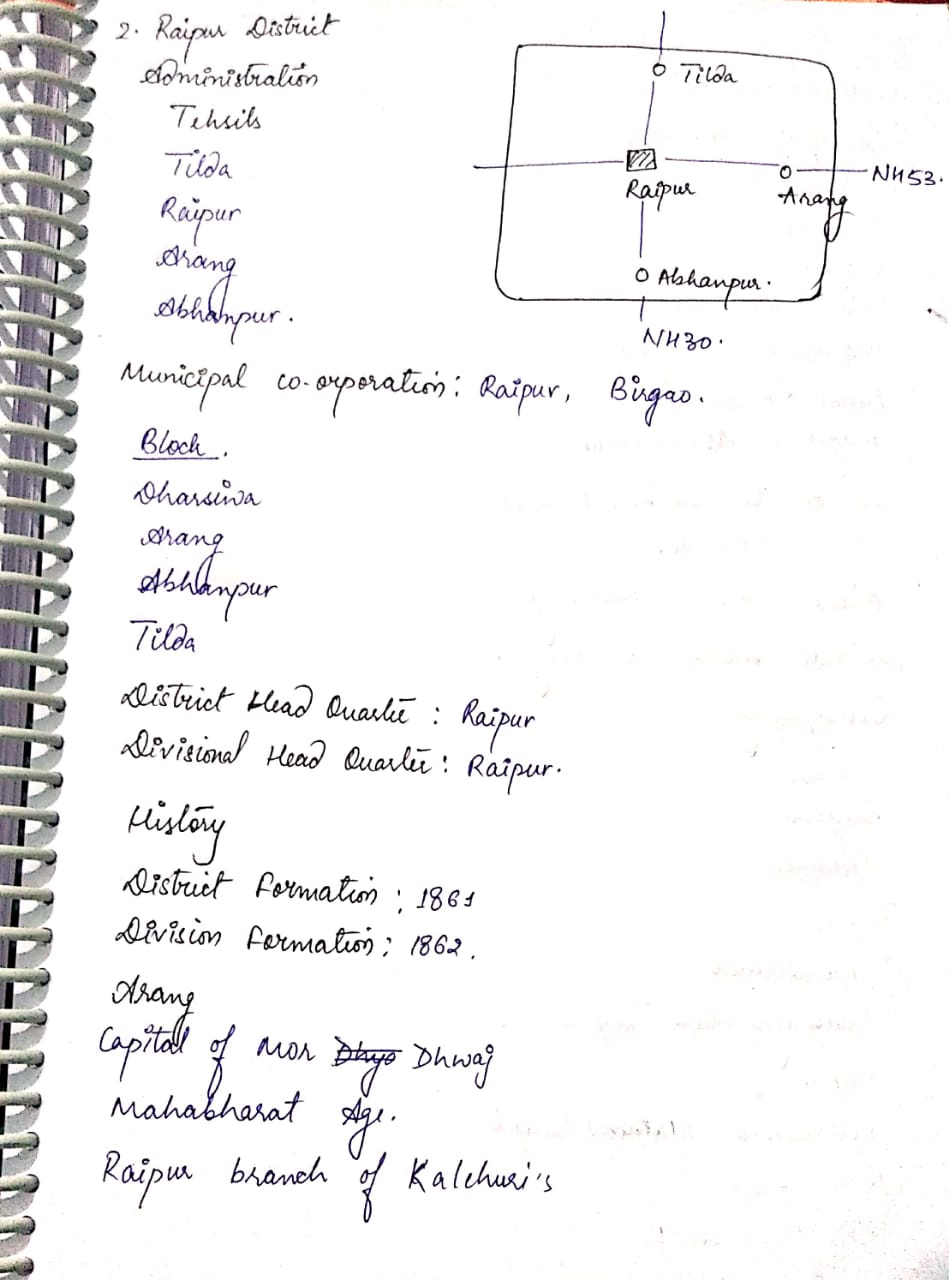 2. Raipur District
Administration
Tehsils
Tilda
Raipur
Arang
Abhanpur.
Tilda
Raipur
Arang
NH53.
Abhanpur.
NH30.
Municipal co-orporation: Raipur, Birgao.
Block.
Dharsiwa
Arang
Abhanpur
Tilda
District Head Quarter : Raipur
Divisional Head Quarter : Raipur.
History
District Formation : 1861
Division Formation : 1862.
Arang
Capital of Mor Dhyo Dhwaj
Mahabharat Age.
Raipur branch of Kalchuri's